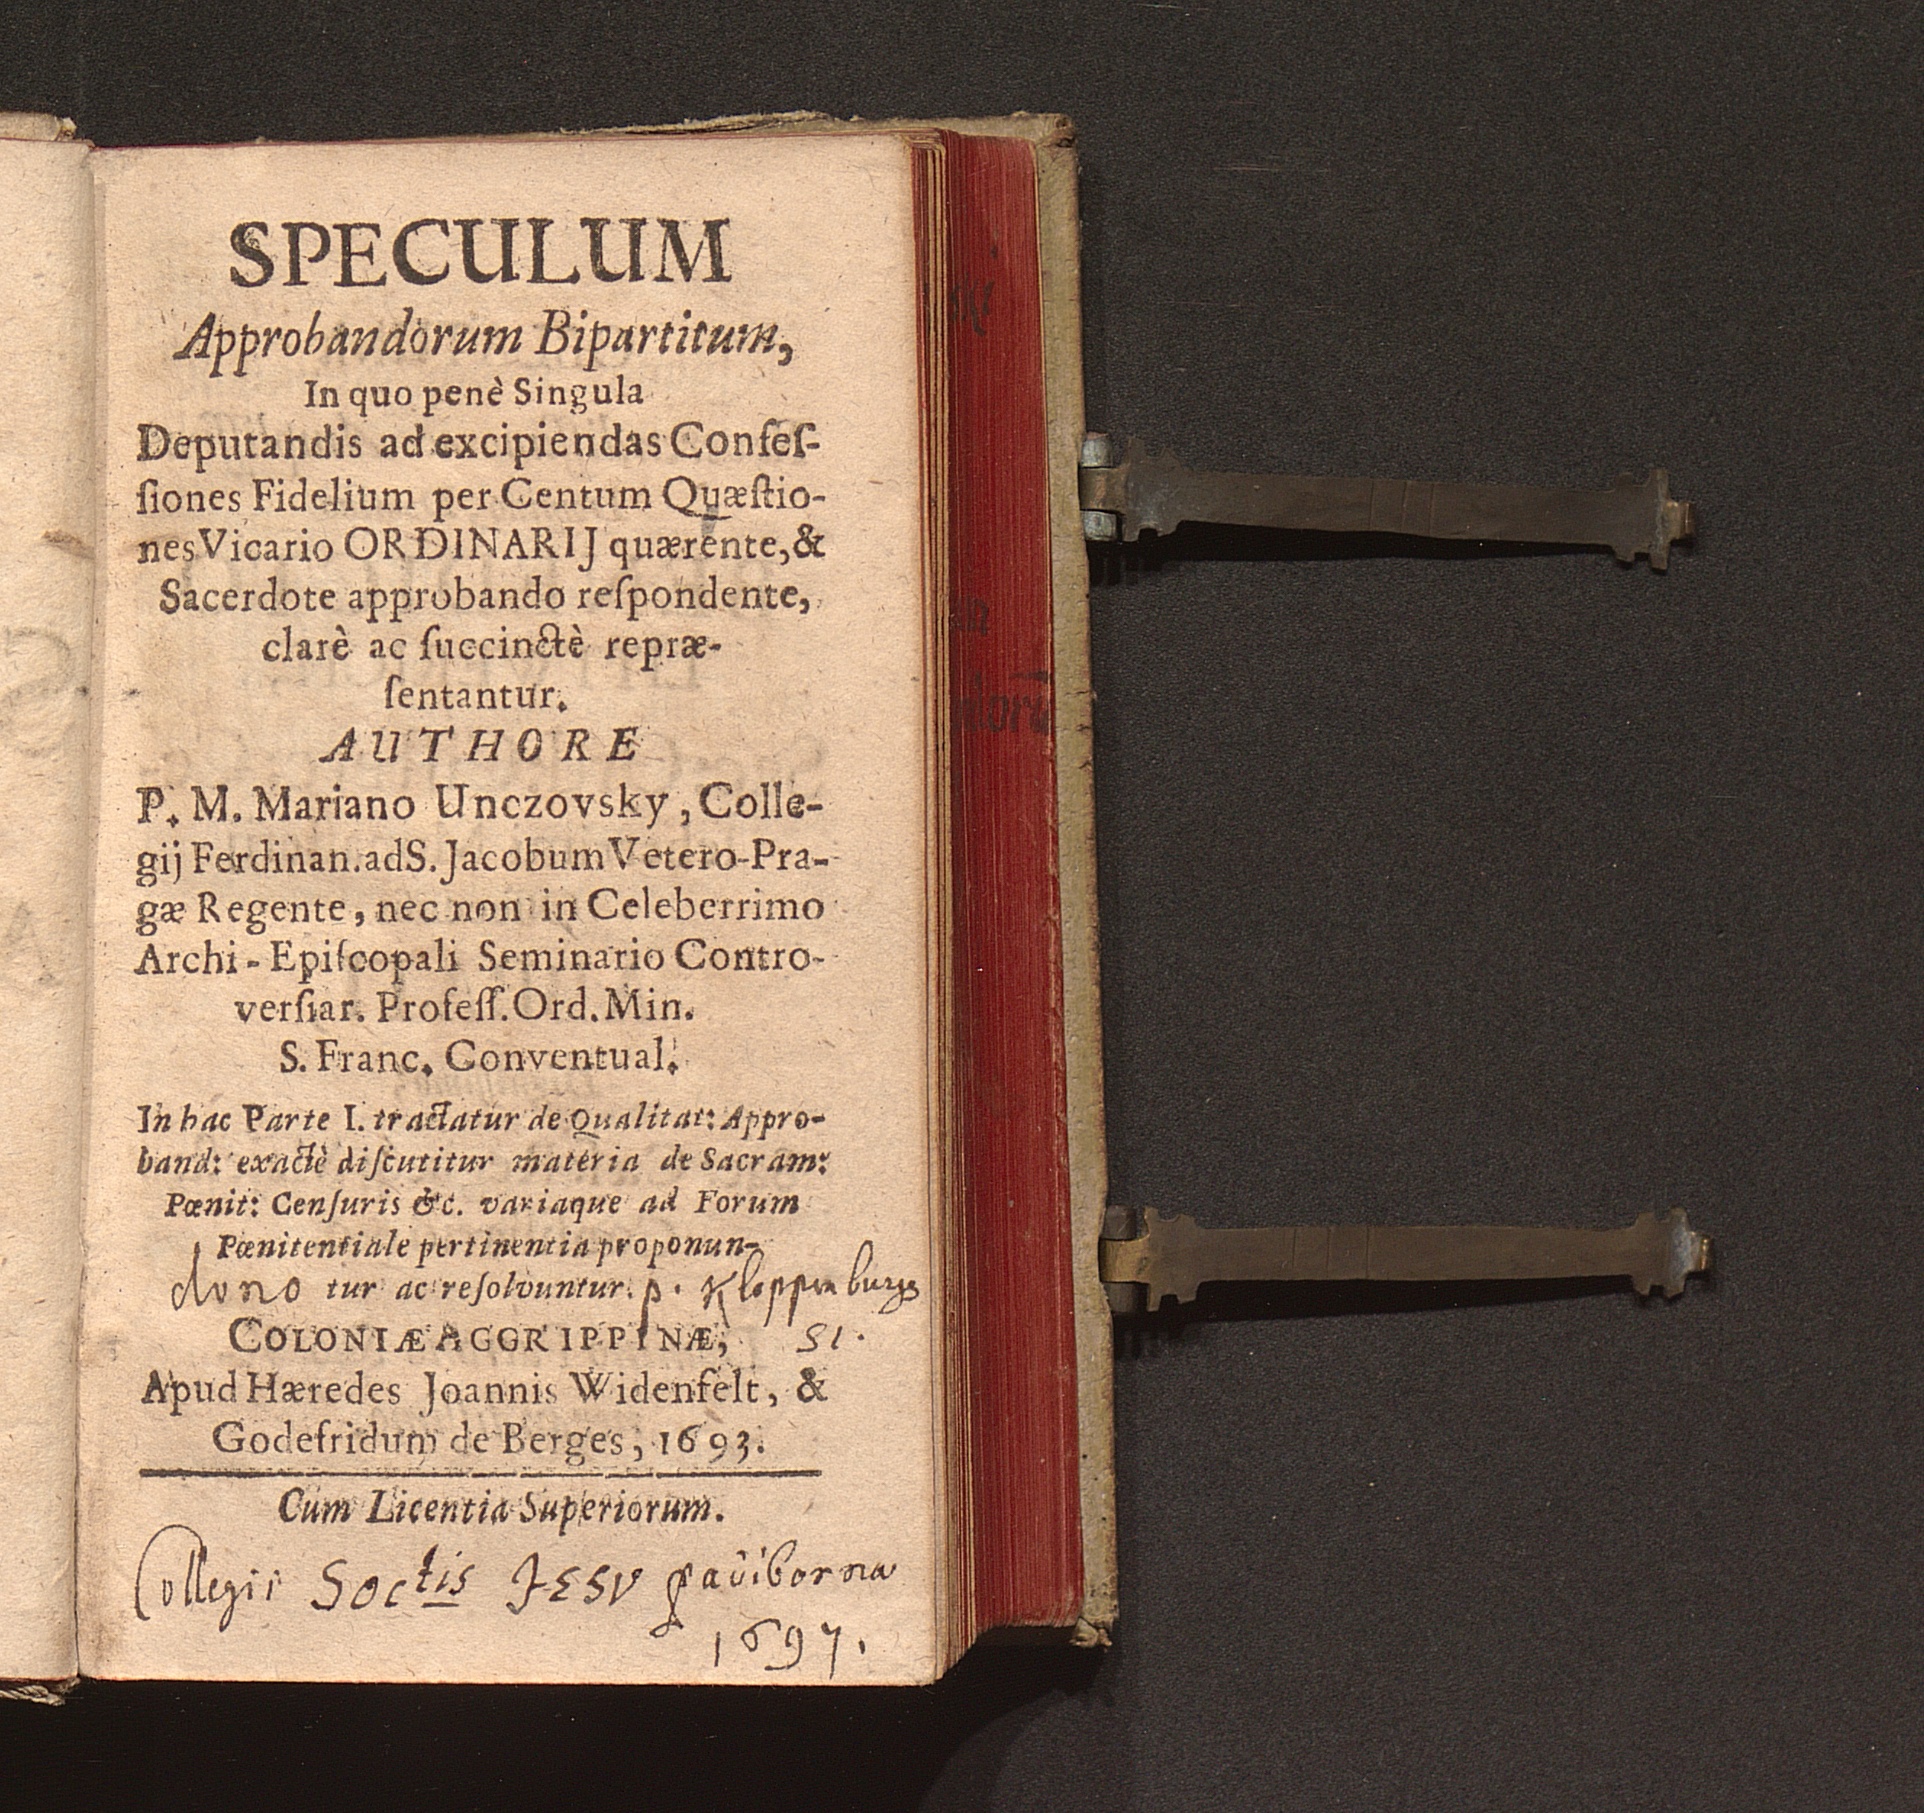 SPECULUM
Approbandorum Bipartitum,
In quo penè Singula
Deputandis ad excipiendas Confeſ-
ſiones Fidelium per Centum Quæſtio-
nes Vicario ORDINARIJ quærente, &
Sacerdote approbando reſpondente,
clarè ac ſuccinctè repræ-
ſentantur.
AUTHORE
P. M. Mariano Unczovsky, Colle-
gij Ferdinan. ad S. Jacobum Vetero-Pra-
gæ Regente, nec non in Celeberrimo
Archi-Epiſcopali Seminario Contro-
verſiar. Profeſſ. Ord. Min.
S. Franc. Conventual.
In hac Parte I. tractatur de Qualitat: Appro-
band: exactè diſcutitur materia de Sacram:
Pœnit: Cenſuris &c. variaque ad Forum
Pœnitentiale pertinentia proponun-
tur ac reſolvuntur.
dono p. Kloppenburg
SI.
COLONIÆ AGGRIPPINÆ,
Apud Hæredes Joannis Widenfelt, &
Godefridum de Berges, 1693.
Cum Licentia Superiorum.
Collegii Soctis JESV
1697.